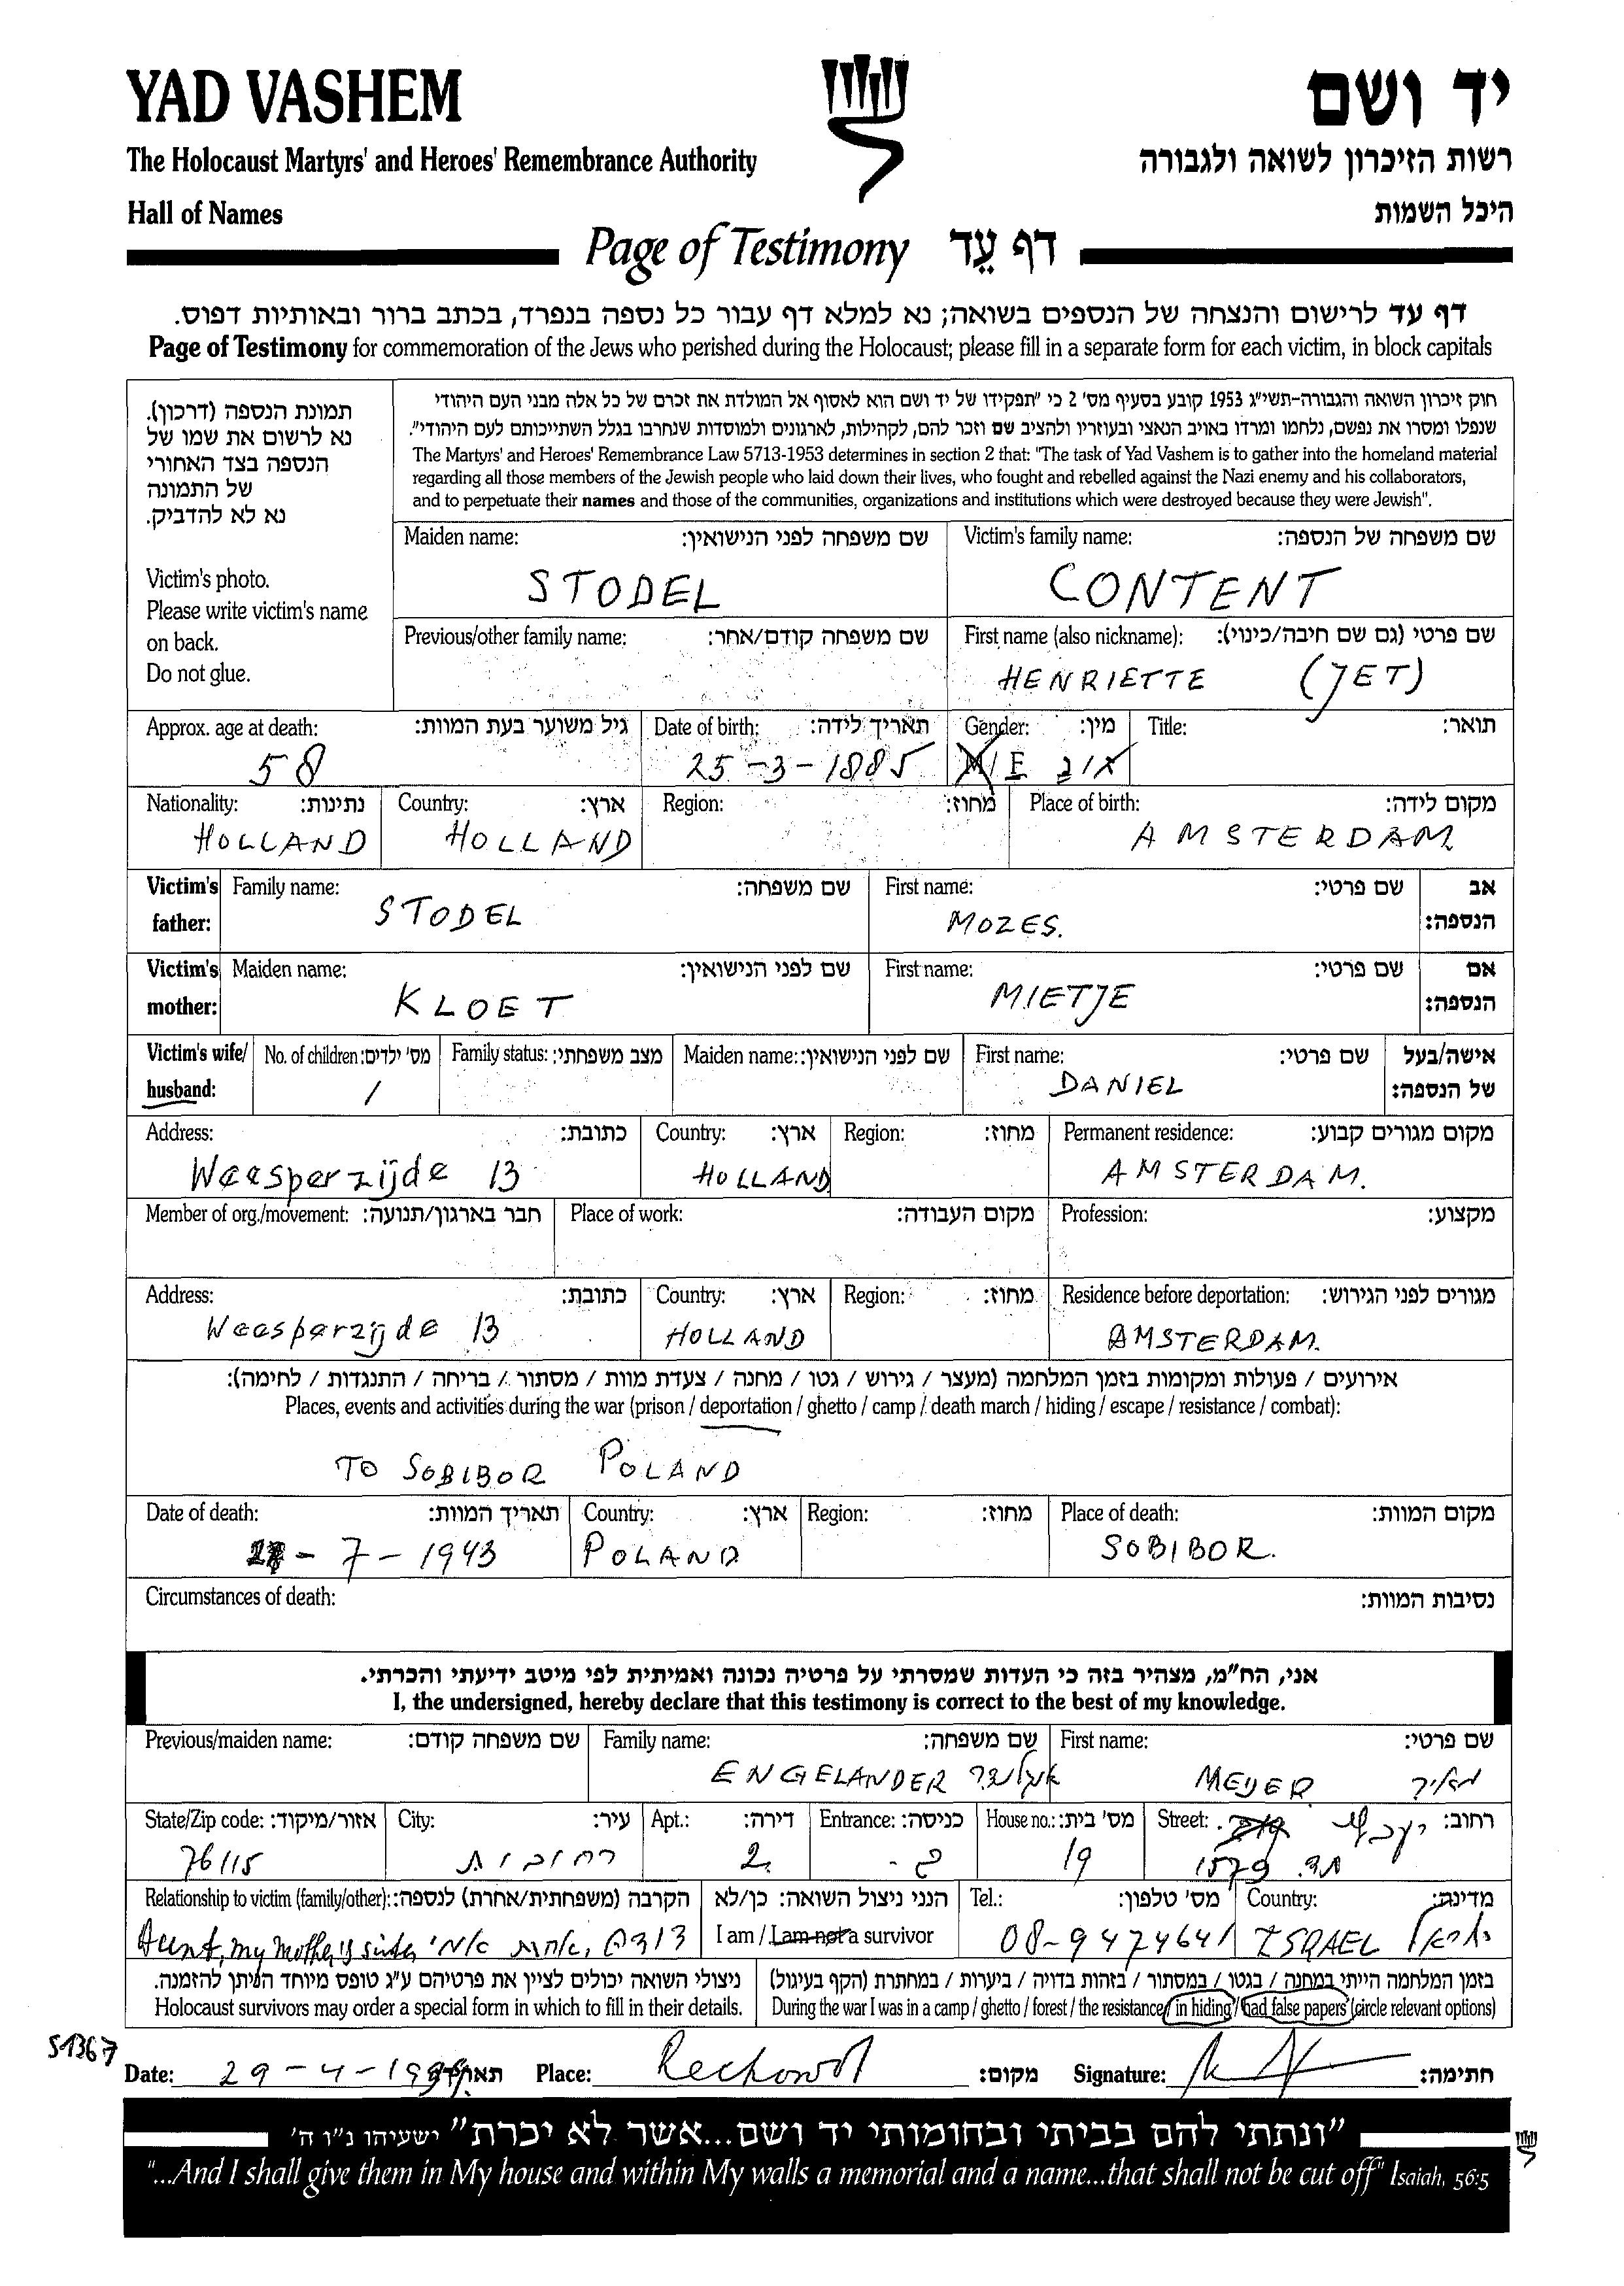 YAD VASHEM
יד ושם
The Holocaust Martyrs' and Heroes' Remembrance Authority
רשות הזיכרון לשואה ולגבורה
Hall of Names
היכל השמות
Page of Testimony דף עֵד
דף עד לרישום והנצחה של הנספים בשואה; נא למלא דף עבור כל נספה בנפרד, בכתב ברור ובאותיות דפוס.
Page of Testimony for commemoration of the Jews who perished during the Holocaust; please fill in a separate form for each victim, in block capitals
תמונת הנספה (דרכון).
נא לרשום את שמו של
הנספה בצד האחורי
של התמונה
נא לא להדביק.
Victim's photo.
Please write victim's name
on back.
Do not glue.
חוק זיכרון השואה והגבורה-תשי"ג 1953 קובע בסעיף מס' 2 כי "תפקידו של יד ושם הוא לאסוף אל המולדת את זכרם של כל אלה מבני העם היהודי
שנפלו ומסרו את נפשם, נלחמו ומרדו באויב הנאצי ובעוזריו ולהציב שם וזכר להם, לקהילות, לארגונים ולמוסדות שנחרבו בגלל השתייכותם לעם היהודי".
The Martyrs' and Heroes' Remembrance Law 5713-1953 determines in section 2 that: "The task of Yad Vashem is to gather into the homeland material
regarding all those members of the Jewish people who laid down their lives, who fought and rebelled against the Nazi enemy and his collaborators,
and to perpetuate their names and those of the communities, organizations and institutions which were destroyed because they were Jewish".
Maiden name: שם משפחה לפני הנישואין: Victim's family name: שם משפחה של הנספה:
STODEL CONTENT
Previous/other family name: שם משפחה קודם/אחר: First name (also nickname): שם פרטי (גם שם חיבה/כינוי):
HENRIETTE (JET)
Approx. age at death: גיל משוער בעת המוות: Date of birth: תאריך לידה: Gender: מין: Title: תואר:
58 25-3-1885 M/F ז/נ
Nationality: נתינות: Country: ארץ: Region: מחוז: Place of birth: מקום לידה:
HOLLAND HOLLAND AMSTERDAM.
Victim's father: Family name: שם משפחה: First name: שם פרטי: אב הנספה:
STODEL MOZES.
Victim's mother: Maiden name: שם לפני הנישואין: First name: שם פרטי: אם הנספה:
KLOET MIETJE
Victim's wife/ husband: No. of children: מס' ילדים: Family status: מצב משפחתי: Maiden name: שם לפני הנישואין: First name: שם פרטי: אישה/בעל של הנספה:
1 DANIEL
Address: כתובת: Country: ארץ: Region: מחוז: Permanent residence: מקום מגורים קבוע:
Weesperzijde 13 HOLLAND AMSTERDAM.
Member of org./movement: חבר בארגון/תנועה: Place of work: מקום העבודה: Profession: מקצוע:
Address: כתובת: Country: ארץ: Region: מחוז: Residence before deportation: מגורים לפני הגירוש:
Weesperzijde 13 HOLLAND AMSTERDAM.
אירועים / פעולות ומקומות בזמן המלחמה (מעצר / גירוש / גטו / מחנה / צעדת מוות / מסתור / בריחה / התנגדות / לחימה):
Places, events and activities during the war (prison / deportation / ghetto / camp / death march / hiding / escape / resistance / combat):
TO SOBIBOR POLAND
Date of death: תאריך המוות: Country: ארץ: Region: מחוז: Place of death: מקום המוות:
-7-1943 POLAND SOBIBOR.
Circumstances of death: נסיבות המוות:
אני, הח"מ, מצהיר בזה כי העדות שמסרתי על פרטיה נכונה ואמיתית לפי מיטב ידיעתי והכרתי.
I, the undersigned, hereby declare that this testimony is correct to the best of my knowledge.
Previous/maiden name: שם משפחה קודם: Family name: שם משפחה: First name: שם פרטי:
ENGELANDER MEIJER מאיר
State/Zip code: אזור/מיקוד: City: עיר: Apt.: דירה: Entrance: כניסה: House no.: מס' בית: Street: רחוב:
76115 רחובות 2 19 1579 ת.ד.
Relationship to victim (family/other): הקרבה (משפחתית/אחרת) לנספה: הנני ניצול השואה: כן/לא Tel.: מס' טלפון: Country: מדינה:
Aunt, my mother's sister דודה, אחות אמי I am / I am not a survivor 08-9474641 ISRAEL ישראל
ניצולי השואה יכולים לציין את פרטיהם ע"ג טופס מיוחד הניתן להזמנה. בזמן המלחמה הייתי במחנה / בגטו / במסתור / בזהות בדויה / ביערות / במחתרת (הקף בעיגול)
Holocaust survivors may order a special form in which to fill in their details. During the war I was in a camp / ghetto / forest / the resistance / in hiding / had false papers (circle relevant options)
51367
Date: 29-4-1999 תאריך: Place: Rechowot מקום: Signature: חתימה:
"ונתתי להם בביתי ובחומותי יד ושם...אשר לא יכרת" ישעיהו נ"ו ה'
"...And I shall give them in My house and within My walls a memorial and a name...that shall not be cut off" Isaiah, 56:5